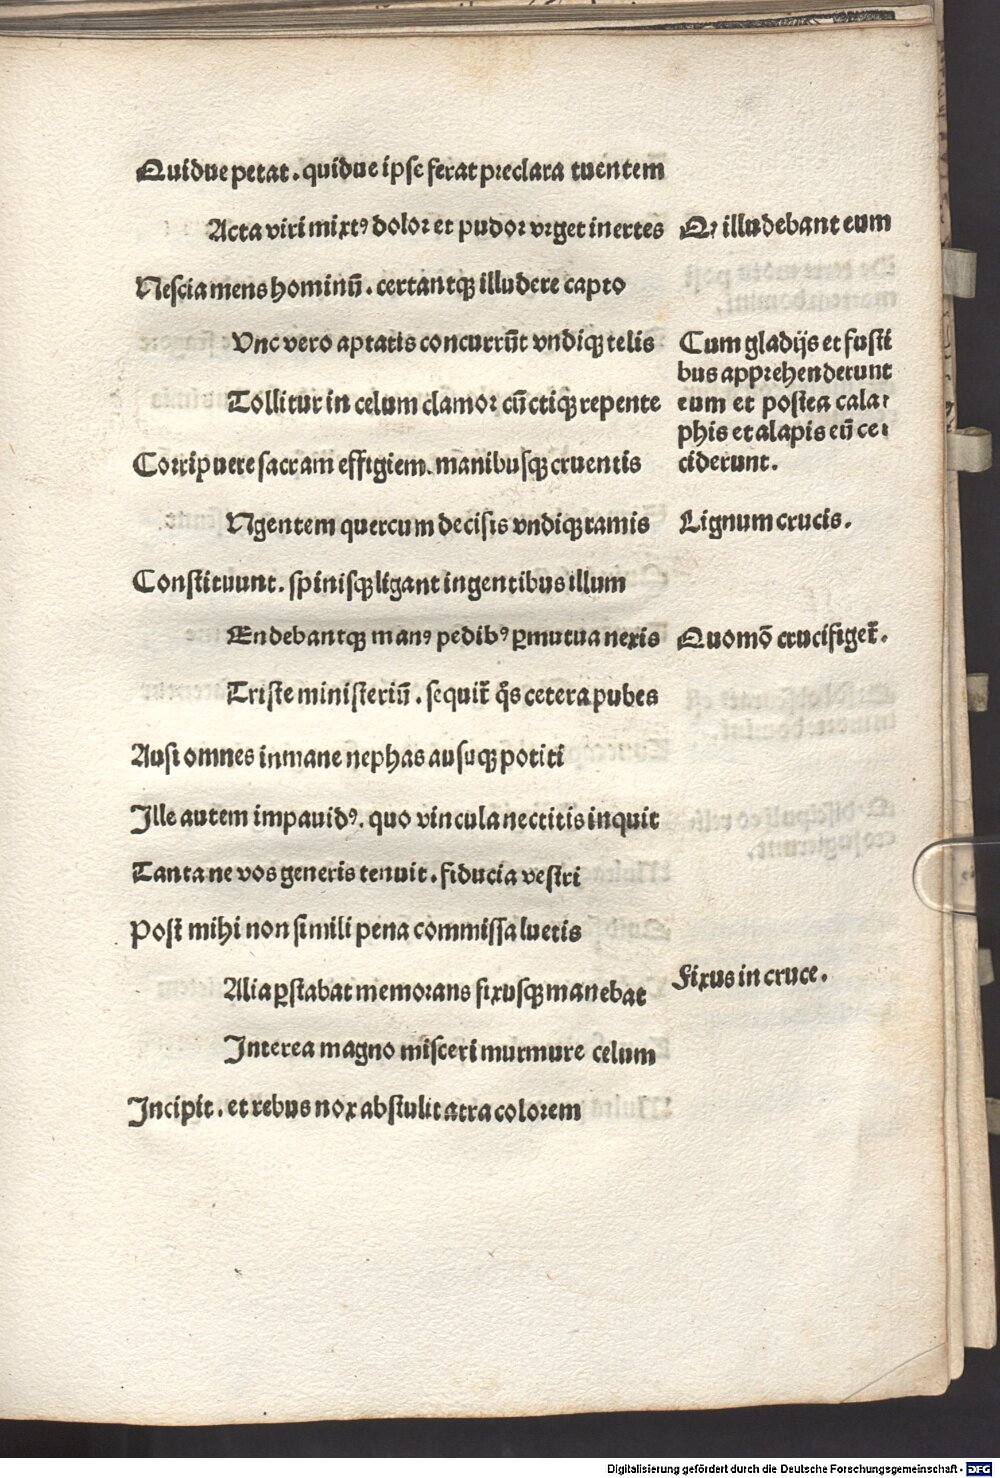 Quidue petat. quidue ipse ferat preclara tuentem
Acta viri mixtꝰ dolor et pudor vrget inertes
Qꝛ illudebant eum
Nescia mens hominū. certantqꝫ illudere capto
Vnc vero aptatis concurrūt vndiqꝫ telis
Tollitur in celum clamor cūctiqꝫ repente
Corripuere sacram effigiem. manibusqꝫ cruentis
Cum gladijs et fusti
bus apprehenderunt
eum et postea cala⸗
phis et alapis eū ce⸗
ciderunt.
Ngentem quercum decisis vndiqꝫ ramis
Lignum crucis.
Constituunt. spinisqꝫ ligant ingentibus illum
Endebantqꝫ manꝰ pedibꝰ ꝑmutua nexis
Quomō crucifiger̄.
Triste ministeriū. sequir̄ q̄s cetera pubes
Ausi omnes inmane nephas ausuqꝫ potiti
Ille autem impauidꝰ. quo vincula nectitis inquit
Tanta ne vos generis tenuit. fiducia vestri
Post mihi non simili pena commissa luetis
Alia ꝑstabat memorans fixusqꝫ manebat
Fixus in cruce.
Interea magno misceri murmure celum
Incipit. et rebus nox abstulit atra colorem
Digitalisierung gefördert durch die Deutsche Forschungsgemeinschaft - DFG